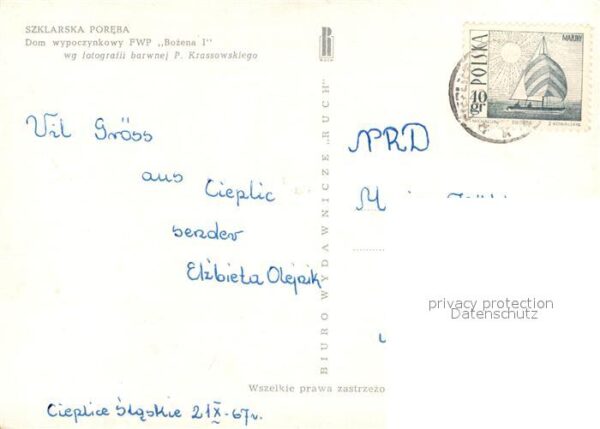 SZKLARSKA PORĘBA
Dom wypoczynkowy FWP „Bożena I"
wg fotografii barwnej P. Krassowskiego
Vil Gröss
aus Cieplic
sender
Elżbieta Olejnik
Cieplice Śląskie 21 X - 67r.
BIURO WYDAWNICZE „RUCH"
Wszelkie prawa zastrzeżo
POLSKA
10 gr
MAZURY
NRD
privacy protection
Datenschutz